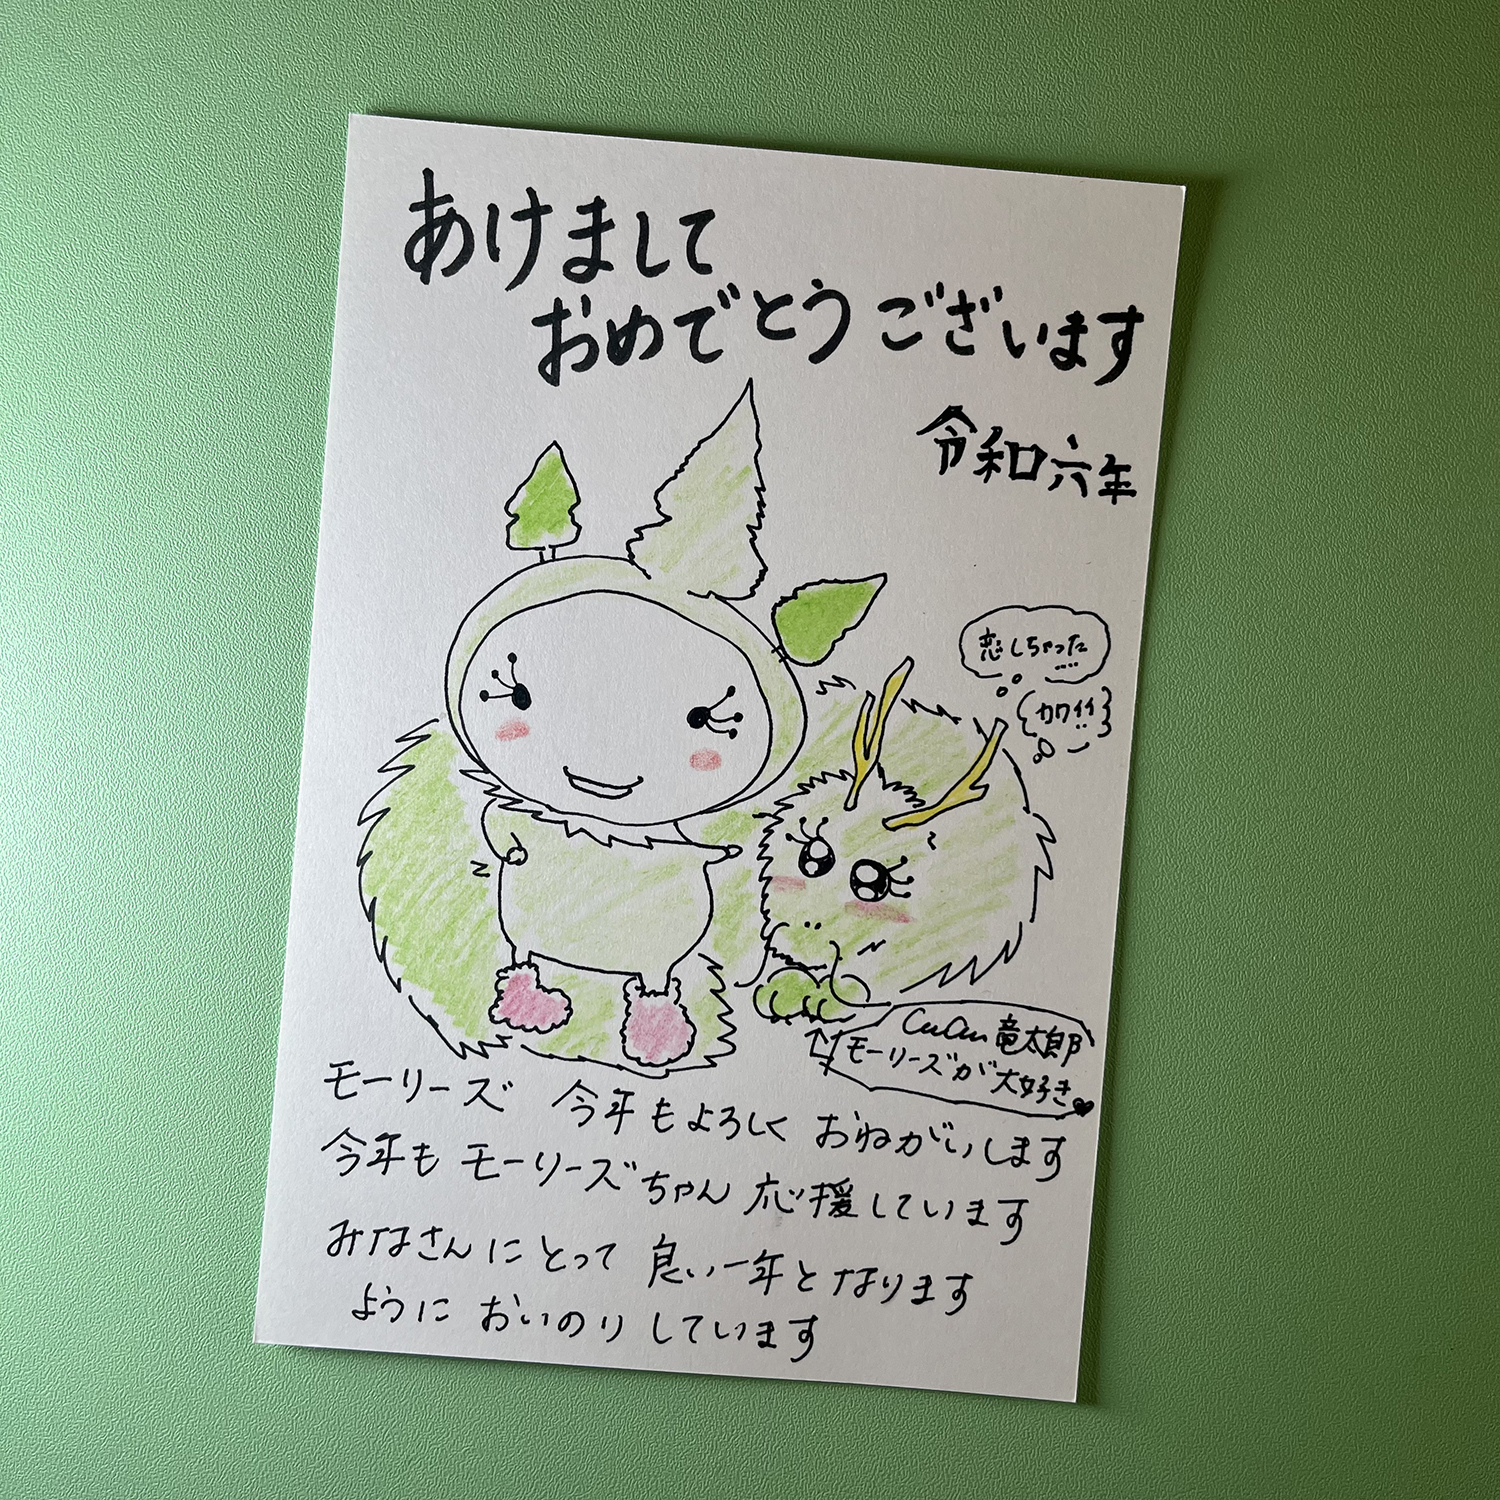 あけまして
おめでとうございます
令和六年
恋しちゃった....
カワイイ
CuCuu竜太郎
モーリーズが大好き
モーリーズ 今年もよろしくおねがいします
今年もモーリーズちゃん応援しています
みなさんにとって良い一年となります
ようにおいのりしています